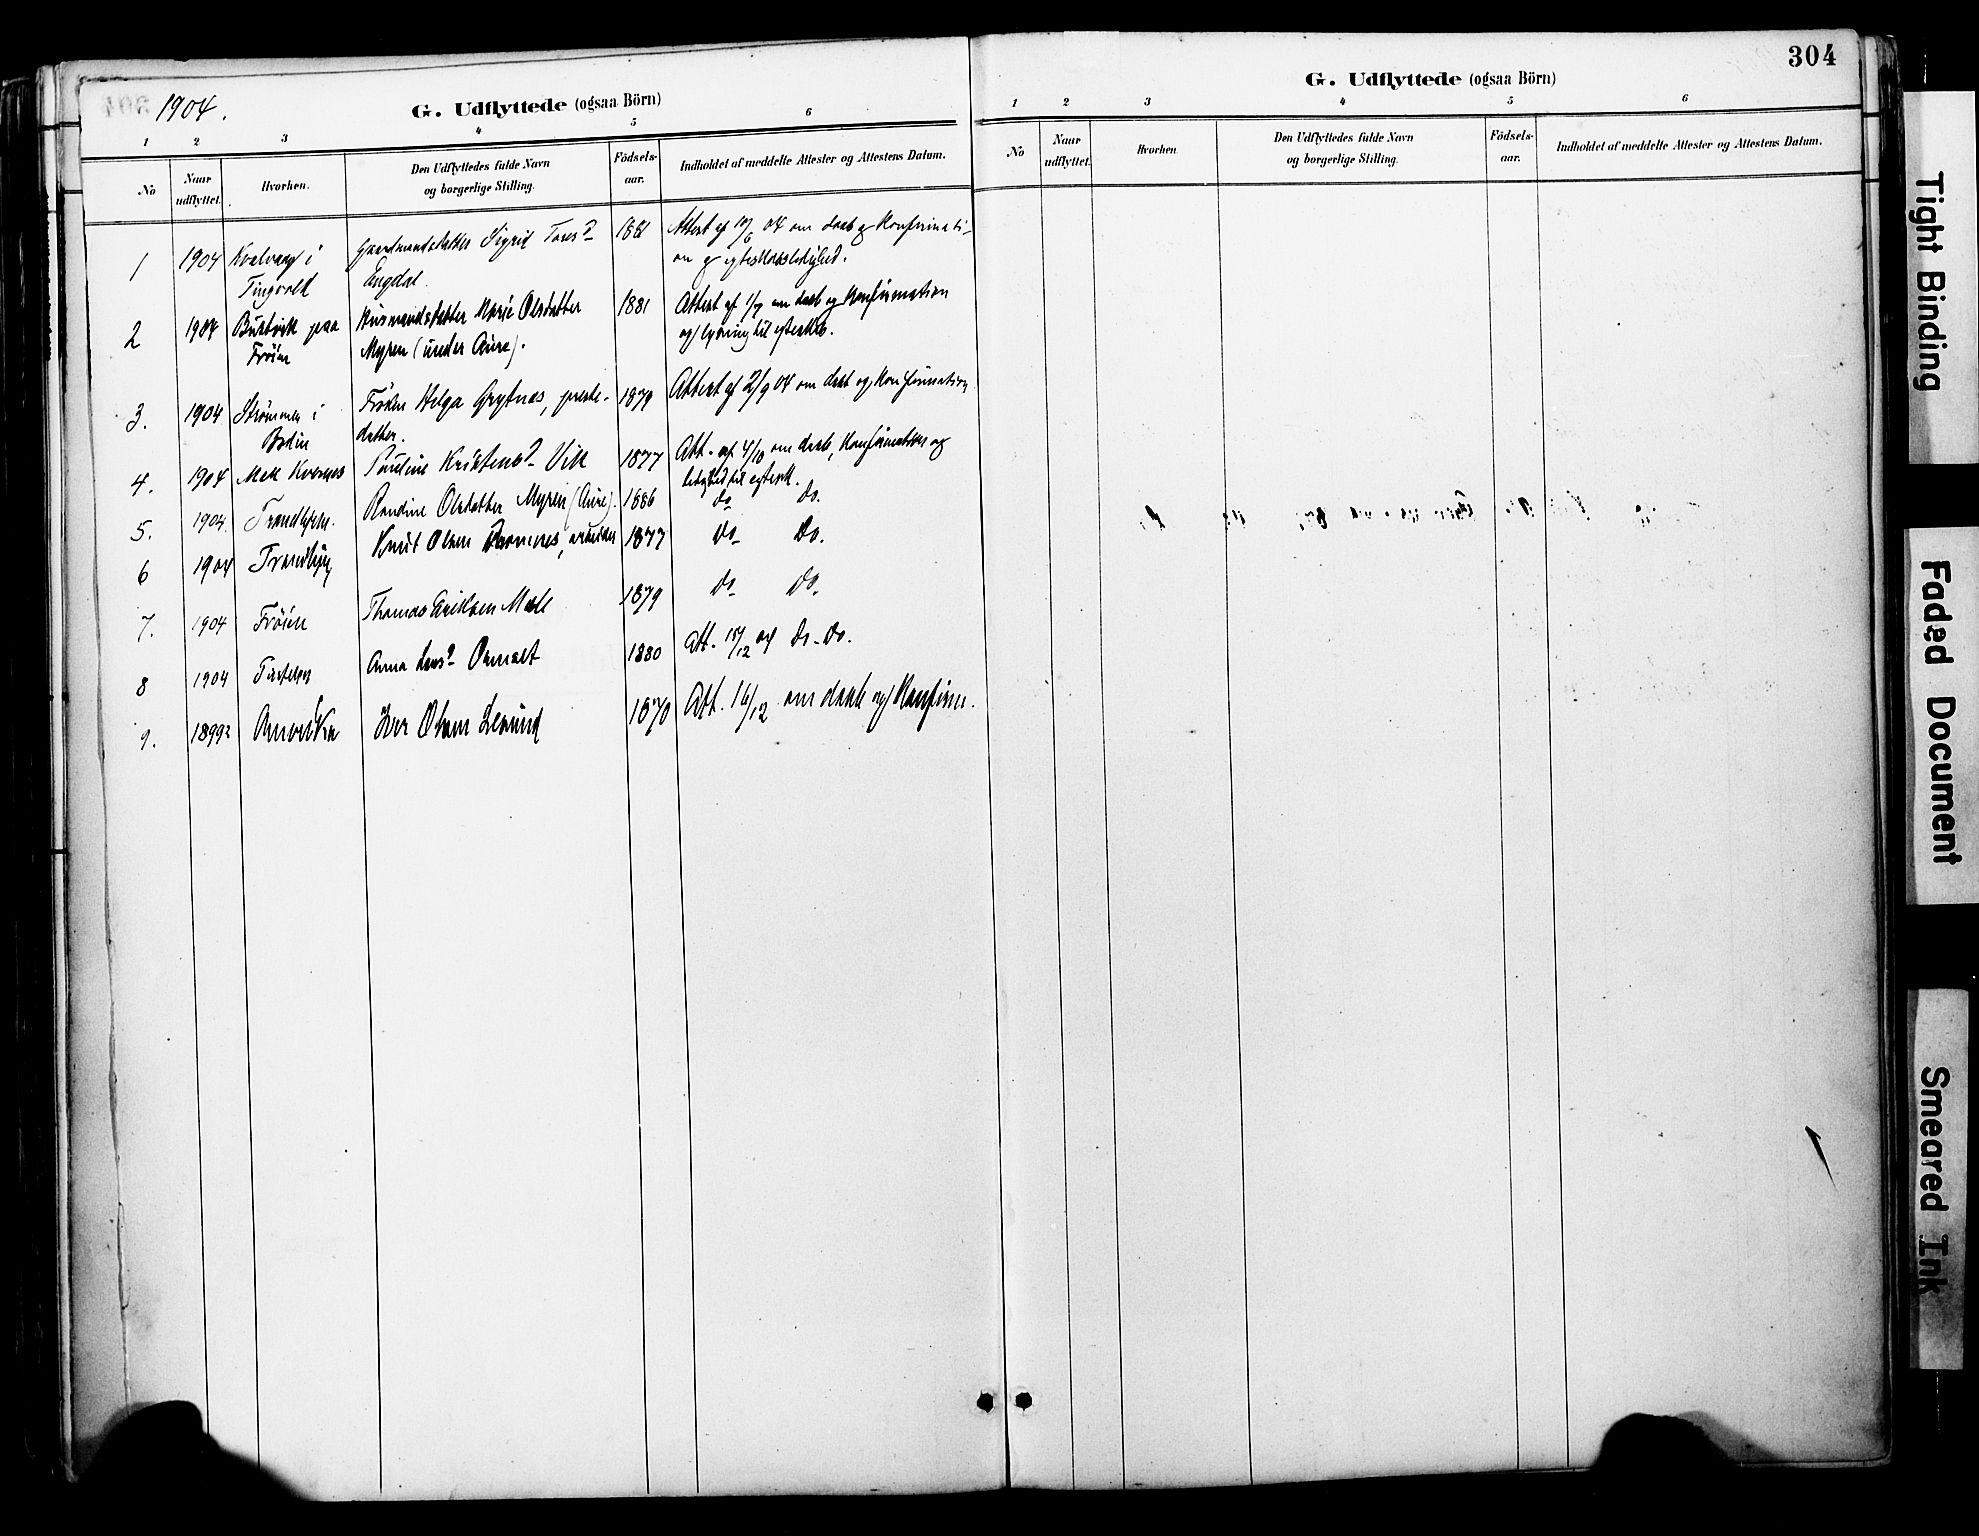 304
1904.
G. Udflyttede (ogsaa Börn)
1 2 3 4 5 6
No Naar udflyttet. Hvorhen. Den Udflyttedes fulde Navn og borgerlige Stilling. Födsels-aar. Indholdet af meddelte Attester og Attestens Datum.
1 1904 Kvalvaag i Gaardmandsdatter Sigrid Tores 1881 Attest af 10/6 04 om daab og Konfirmati-
Tingvold Engdal. on og egteskabsledighed.
2 1904 Buktvik paa Husmandsdatter Marie Olsdatter 1881 Attest af 1/7 om daab og Konfirmation
Fröien Myren (under Aure). og lysning til egteskab.
3. 1904 Strömmen i Fröken Helga Grytnes, preste- 1879 Attest af 2/9 04 om daab og Konfirmation
Bodin datter.
4. 1904 Kvernes Pauline Vik 1877 Att. af 4/10 om daab, Konfirmation og
ledighed til egtesk.
5. 1904. Trondhjem. Randine Olsdatter Myren (Aure). 1886 do do.
6 1904 Trondhjem Knut Olsen arbeider 1877 Do- Do.
7. 1904 Fröien Thomas 1879 Do- Do.
8 1904 Anna 1880 Att. 12 af Do-Do.
9. 1899? Amerika Iver Olsen 1870 Att. 16/12 om daab og Konfirm.
G. Udflyttede (ogsaa Börn)
1 2 3 4 5 6
No Naar udflyttet. Hvorhen Den Udflyttedes fulde Navn og borgerlige Stilling. Födsels-aar. Indholdet af meddelte Attester og Attestens Datum.
Tight Binding
Faded Document
Smeared Ink